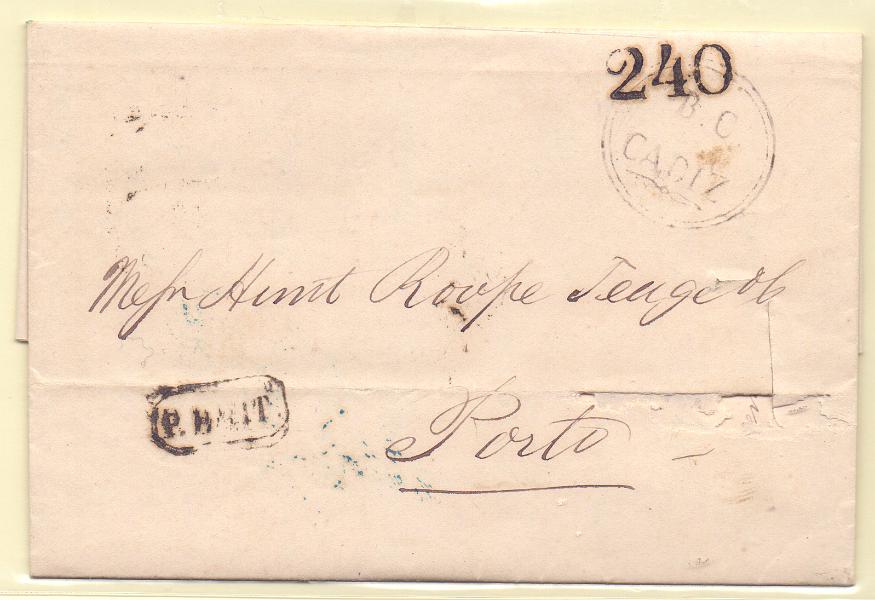 240
B.C
CADIZ
Messrs Hunt Roope Teage & Co
P. BRIT.
Porto